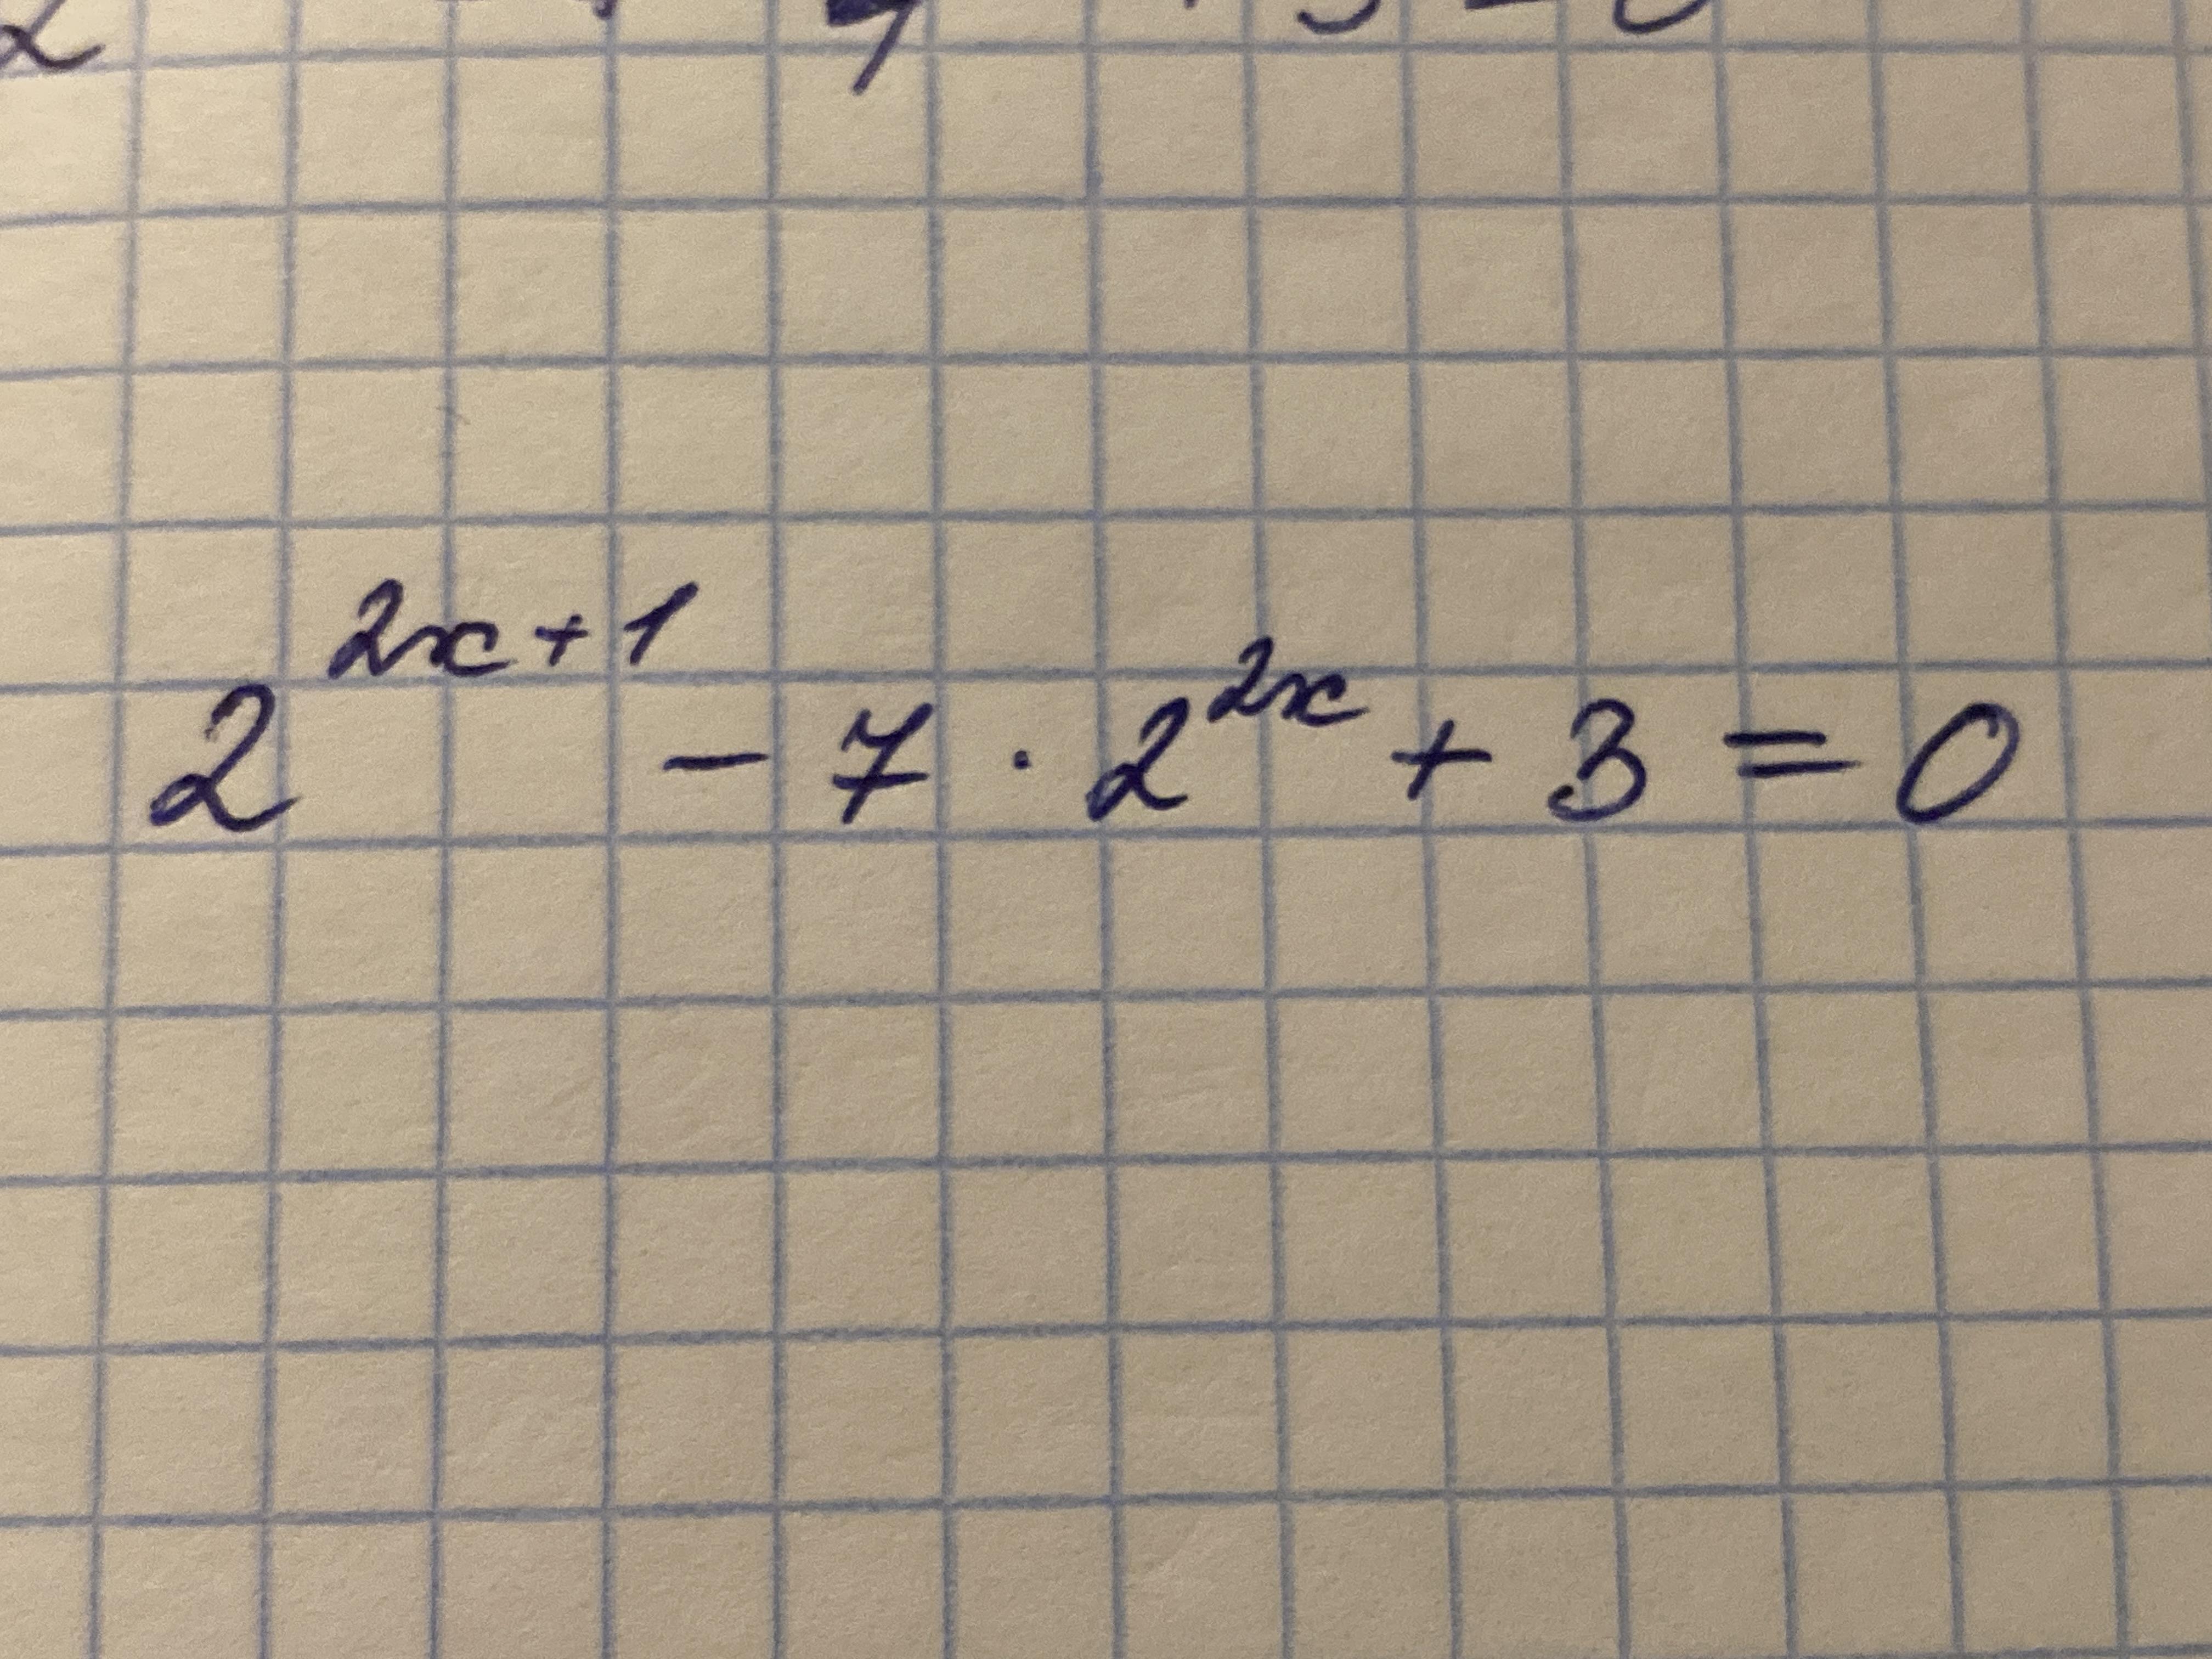 2^{2x+1} - 7 · 2^{2x} + 3 = 0